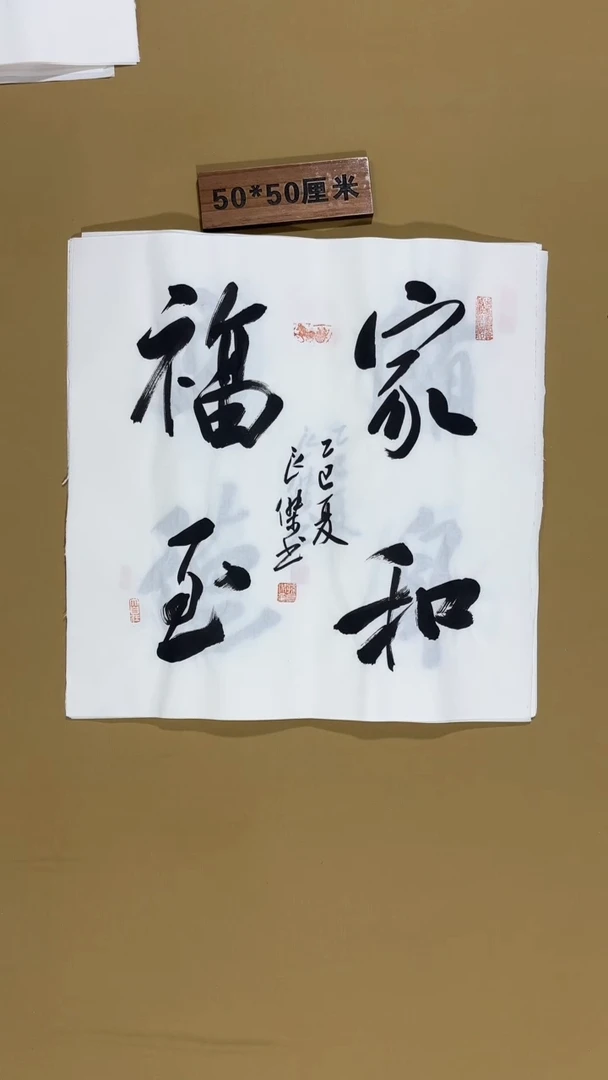 50*50厘米
家和
福至
乙巳夏
良傑书